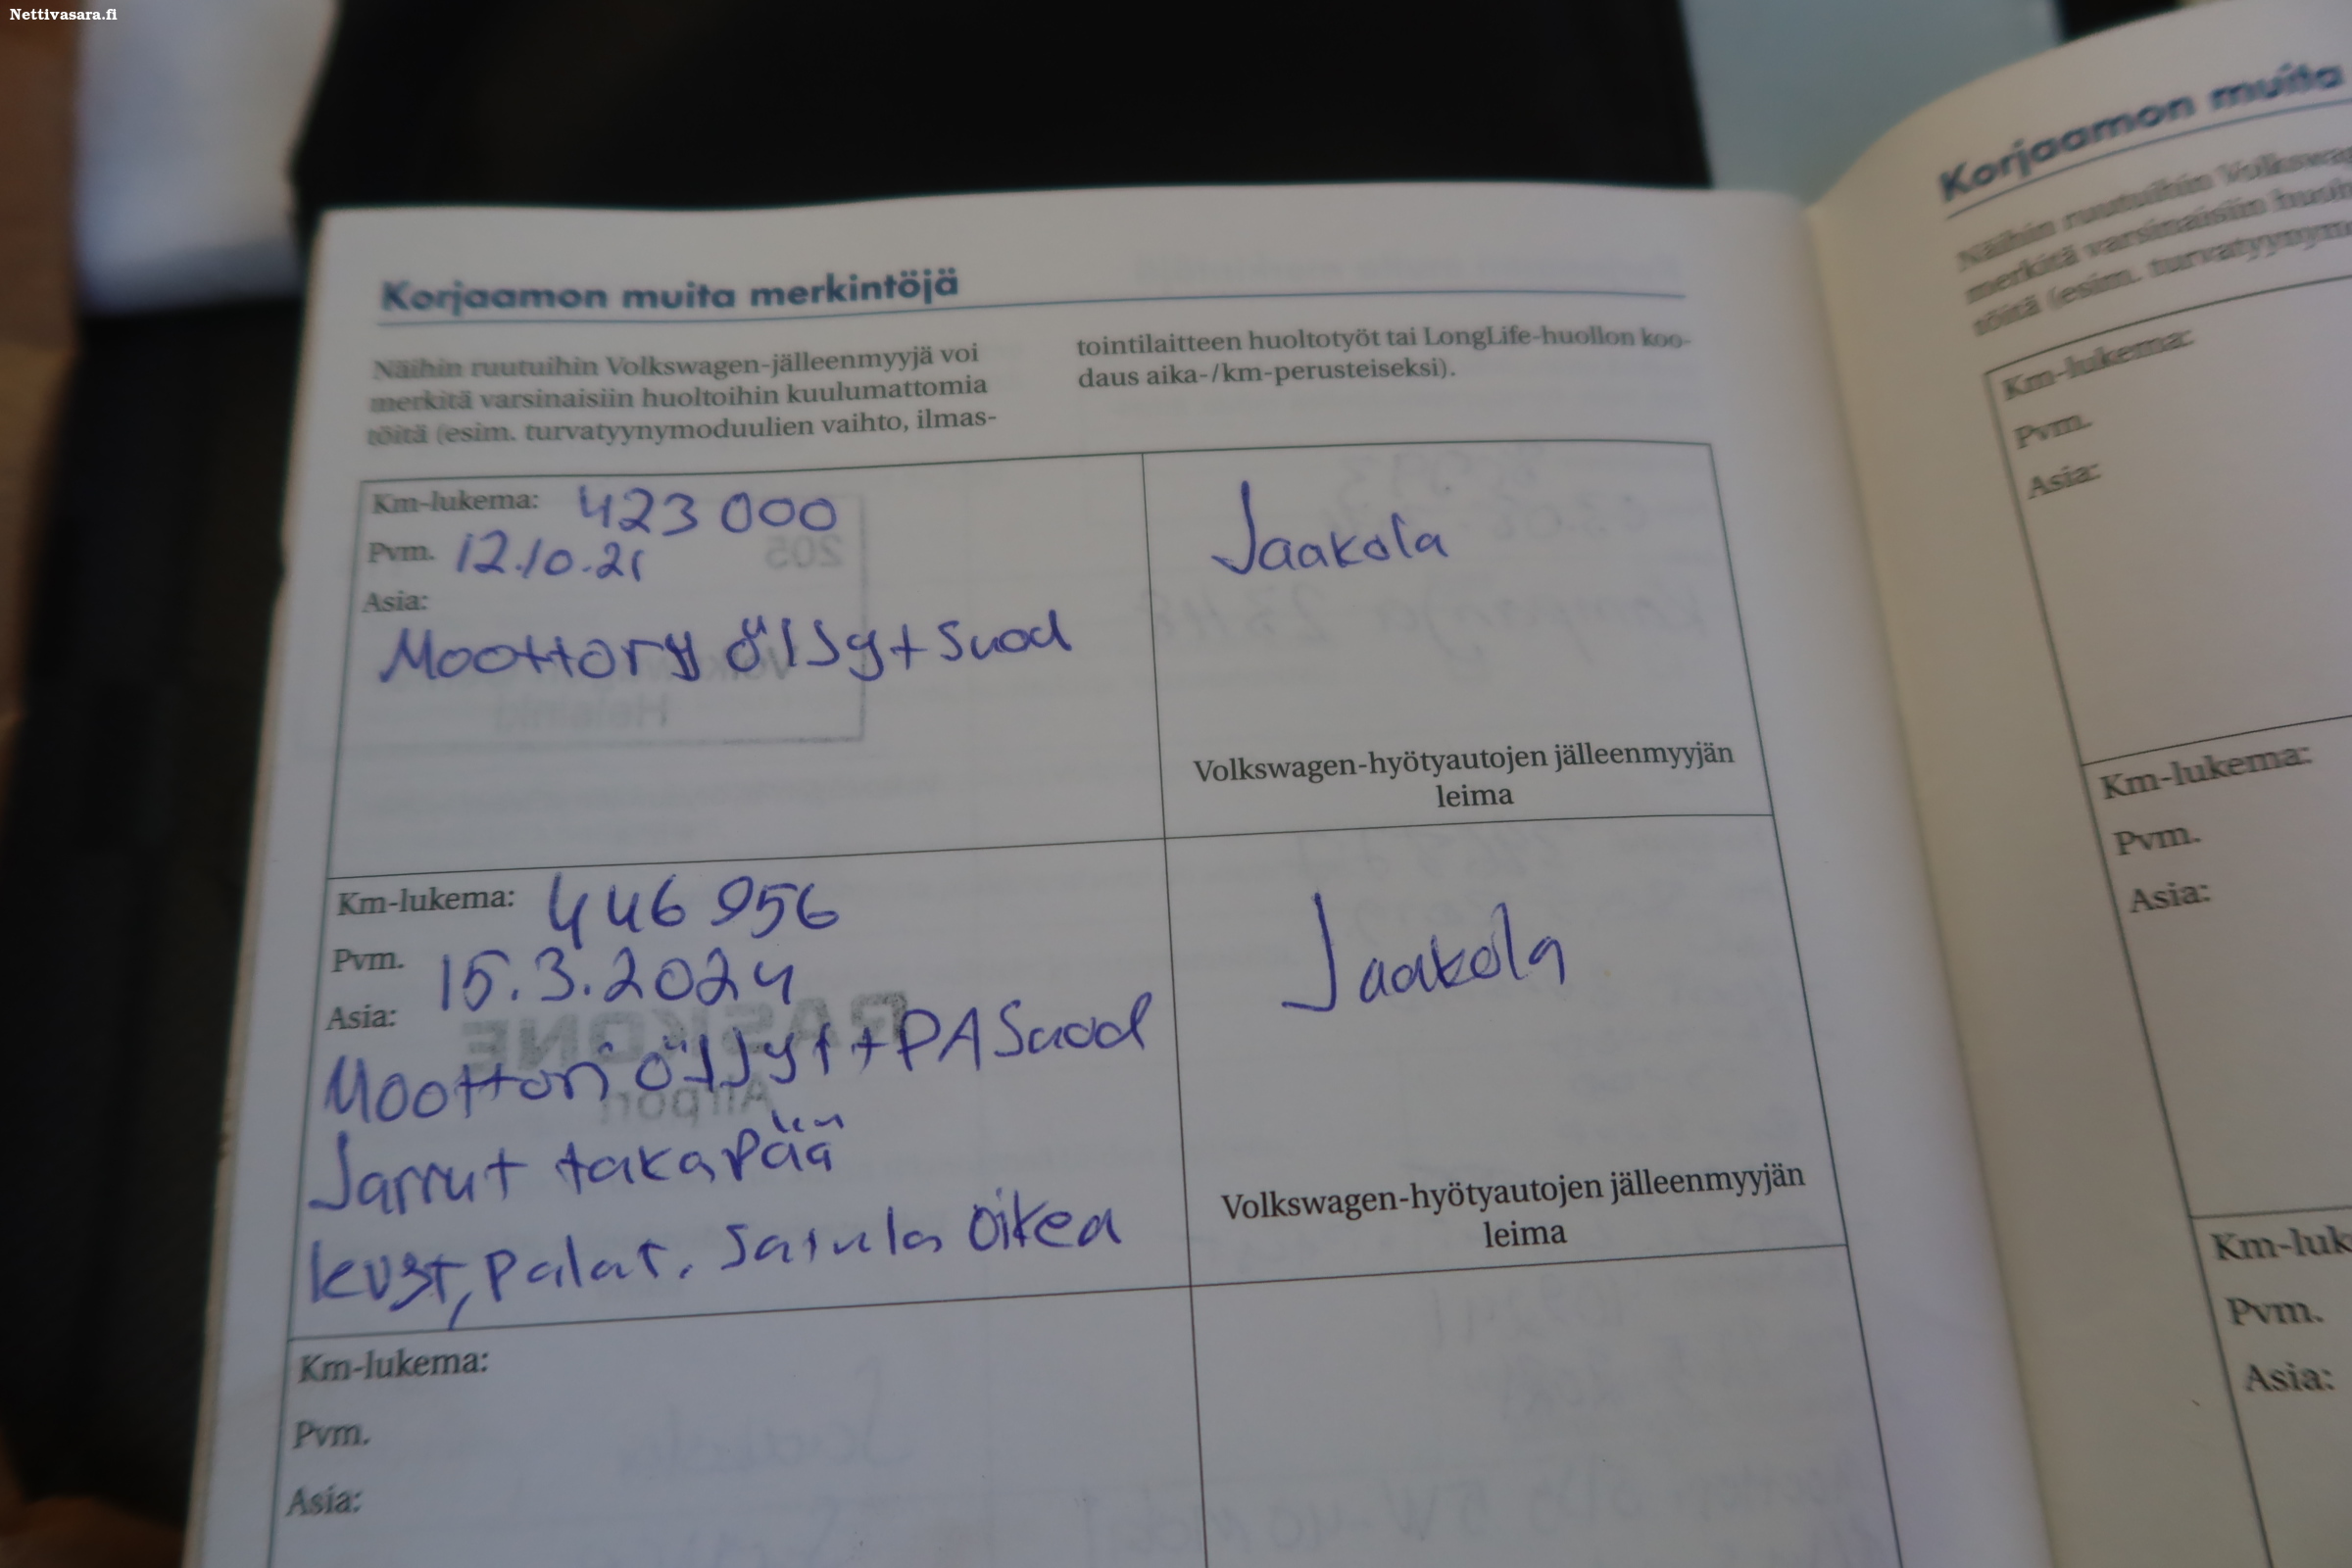 Nettivasara.fi
Korjaamon muita merkintöjä
Näihin ruutuihin Volkswagen-jälleenmyyjä voi
merkitä varsinaisiin huoltoihin kuulumattomia
töitä (esim. turvatyynymoduulien vaihto, ilmas-
tointilaitteen huoltotyöt tai LongLife-huollon koo-
daus aika-/km-perusteiseksi).
Km-lukema: 423 000
Pvm. 12.10.21
Asia:
Moottory öljy + suod
Jaakola
Volkswagen-hyötyautojen jälleenmyyjän
leima
Km-lukema: 446 956
Pvm. 15.3.2024
Asia:
Moottori öljyt + PASuod
Jarrut takapää
levyt, palat, satula oikea
Jaakola
Volkswagen-hyötyautojen jälleenmyyjän
leima
Km-lukema:
Pvm.
Asia:
Korjaamon muita
Näihin ruutuihin
merkitä varsinaisiin
töitä (esim.
Km-lukema:
Pvm.
Asia:
Km-lukema:
Pvm.
Asia:
Km-luk
Pvm.
Asia: